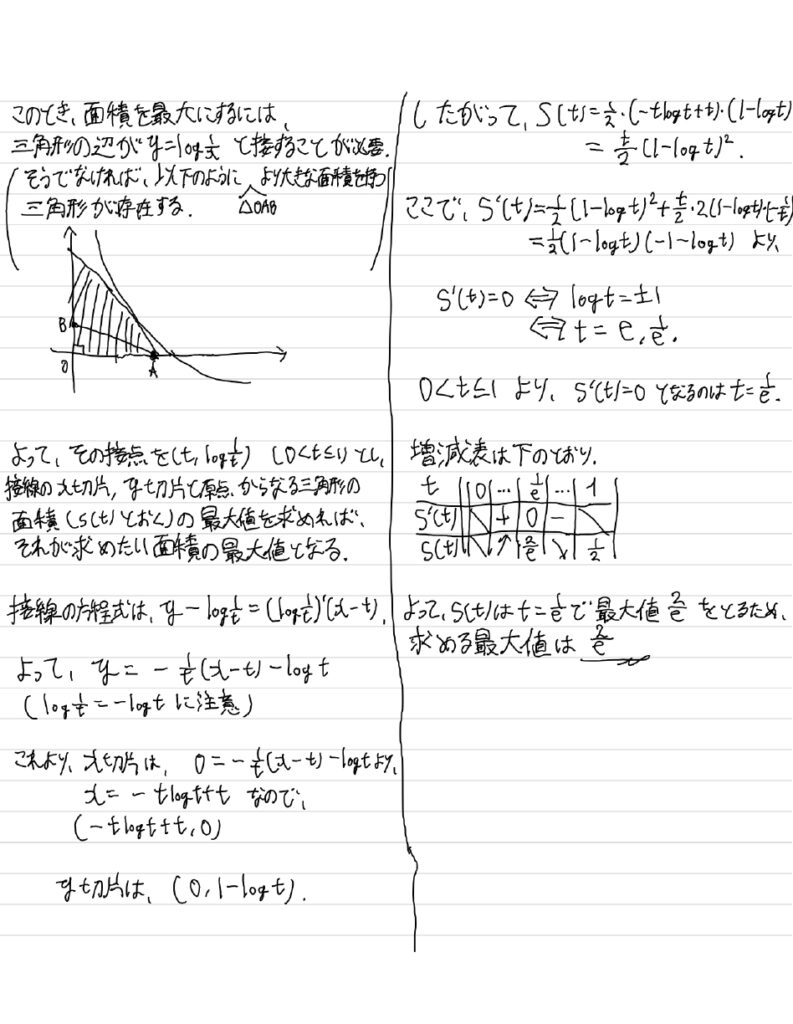 このとき、面積を最大にするには、
三角形の辺が y=log 1/x と接することが必要.
(そうでなければ、以下のように より大きな面積を持つ
三角形が存在する. △OAB)
B
O
A
よって、その接点を(t, log 1/t) (0<t≤1)とし、
接線のx切片, y切片と原点からなる三角形の
面積(S(t)とおく)の最大値を求めれば、
それが求めたい面積の最大値となる.
接線の方程式は、y - log 1/t = (log 1/t)'(x-t).
よって、y = - 1/t (x-t) - log t
(log 1/t = -log t に注意)
これより、x切片は、 0 = - 1/t (x-t) - log t より、
x = - t log t + t なので、
(-t log t + t, 0)
y切片は、(0, 1-log t).
したがって、S(t) = 1/2・(-t log t + t)・(1-log t)
= t/2 (1-log t)².
ここで、S'(t) = 1/2 (1-log t)² + t/2・2(1-log t)・(-1/t)
= 1/2 (1-log t)(-1-log t) より、
S'(t)=0 ⟺ log t = ±1
⟺ t = e, 1/e.
0<t≤1 より、S'(t)=0 となるのは t = 1/e.
増減表は下のとおり.
t | 0 | … | 1/e | … | 1
S'(t) | \ | + | 0 | - | \
S(t) | \ | ↗ | 2/e | ↘ | 1/2
よって、S(t)は t = 1/e で 最大値 2/e をとるため、
求める最大値は 2/e